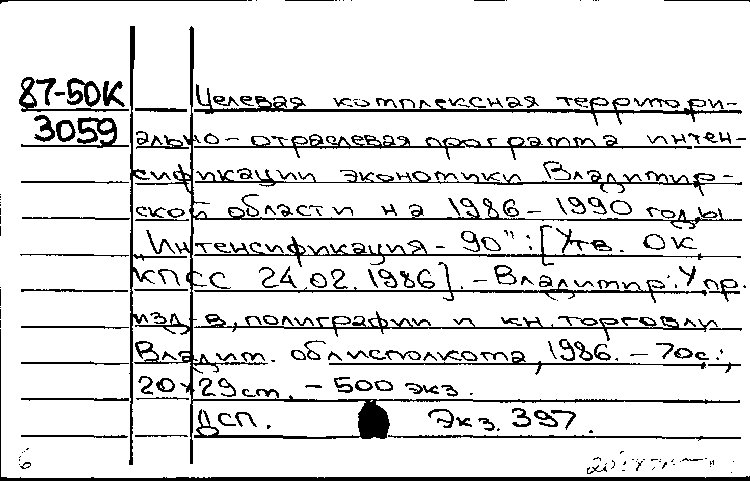 87-50К Целевая комплексная территори-
3059 ально-отраслевая программа интен-
сификации экономики Владимир-
ской области на 1986-1990 годы
„Интенсификация-90": [Утв. ОК
КПСС 24.02.1986]. - Владимир: Упр.
изд-в, полиграфии и кн. торговли
Владим. облисполкома, 1986. - 70с.;
20×29см. - 500 экз.
ДСП. Экз. 397.
6